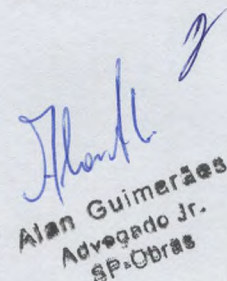 Alan Guimarães
Advogado Jr.
SP-Obras